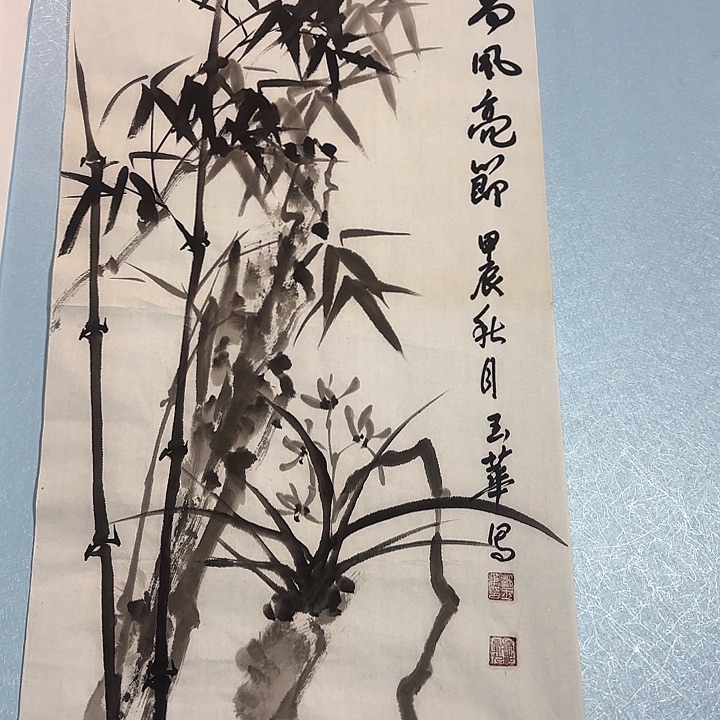 高風亮節 甲辰秋月 玉華寫